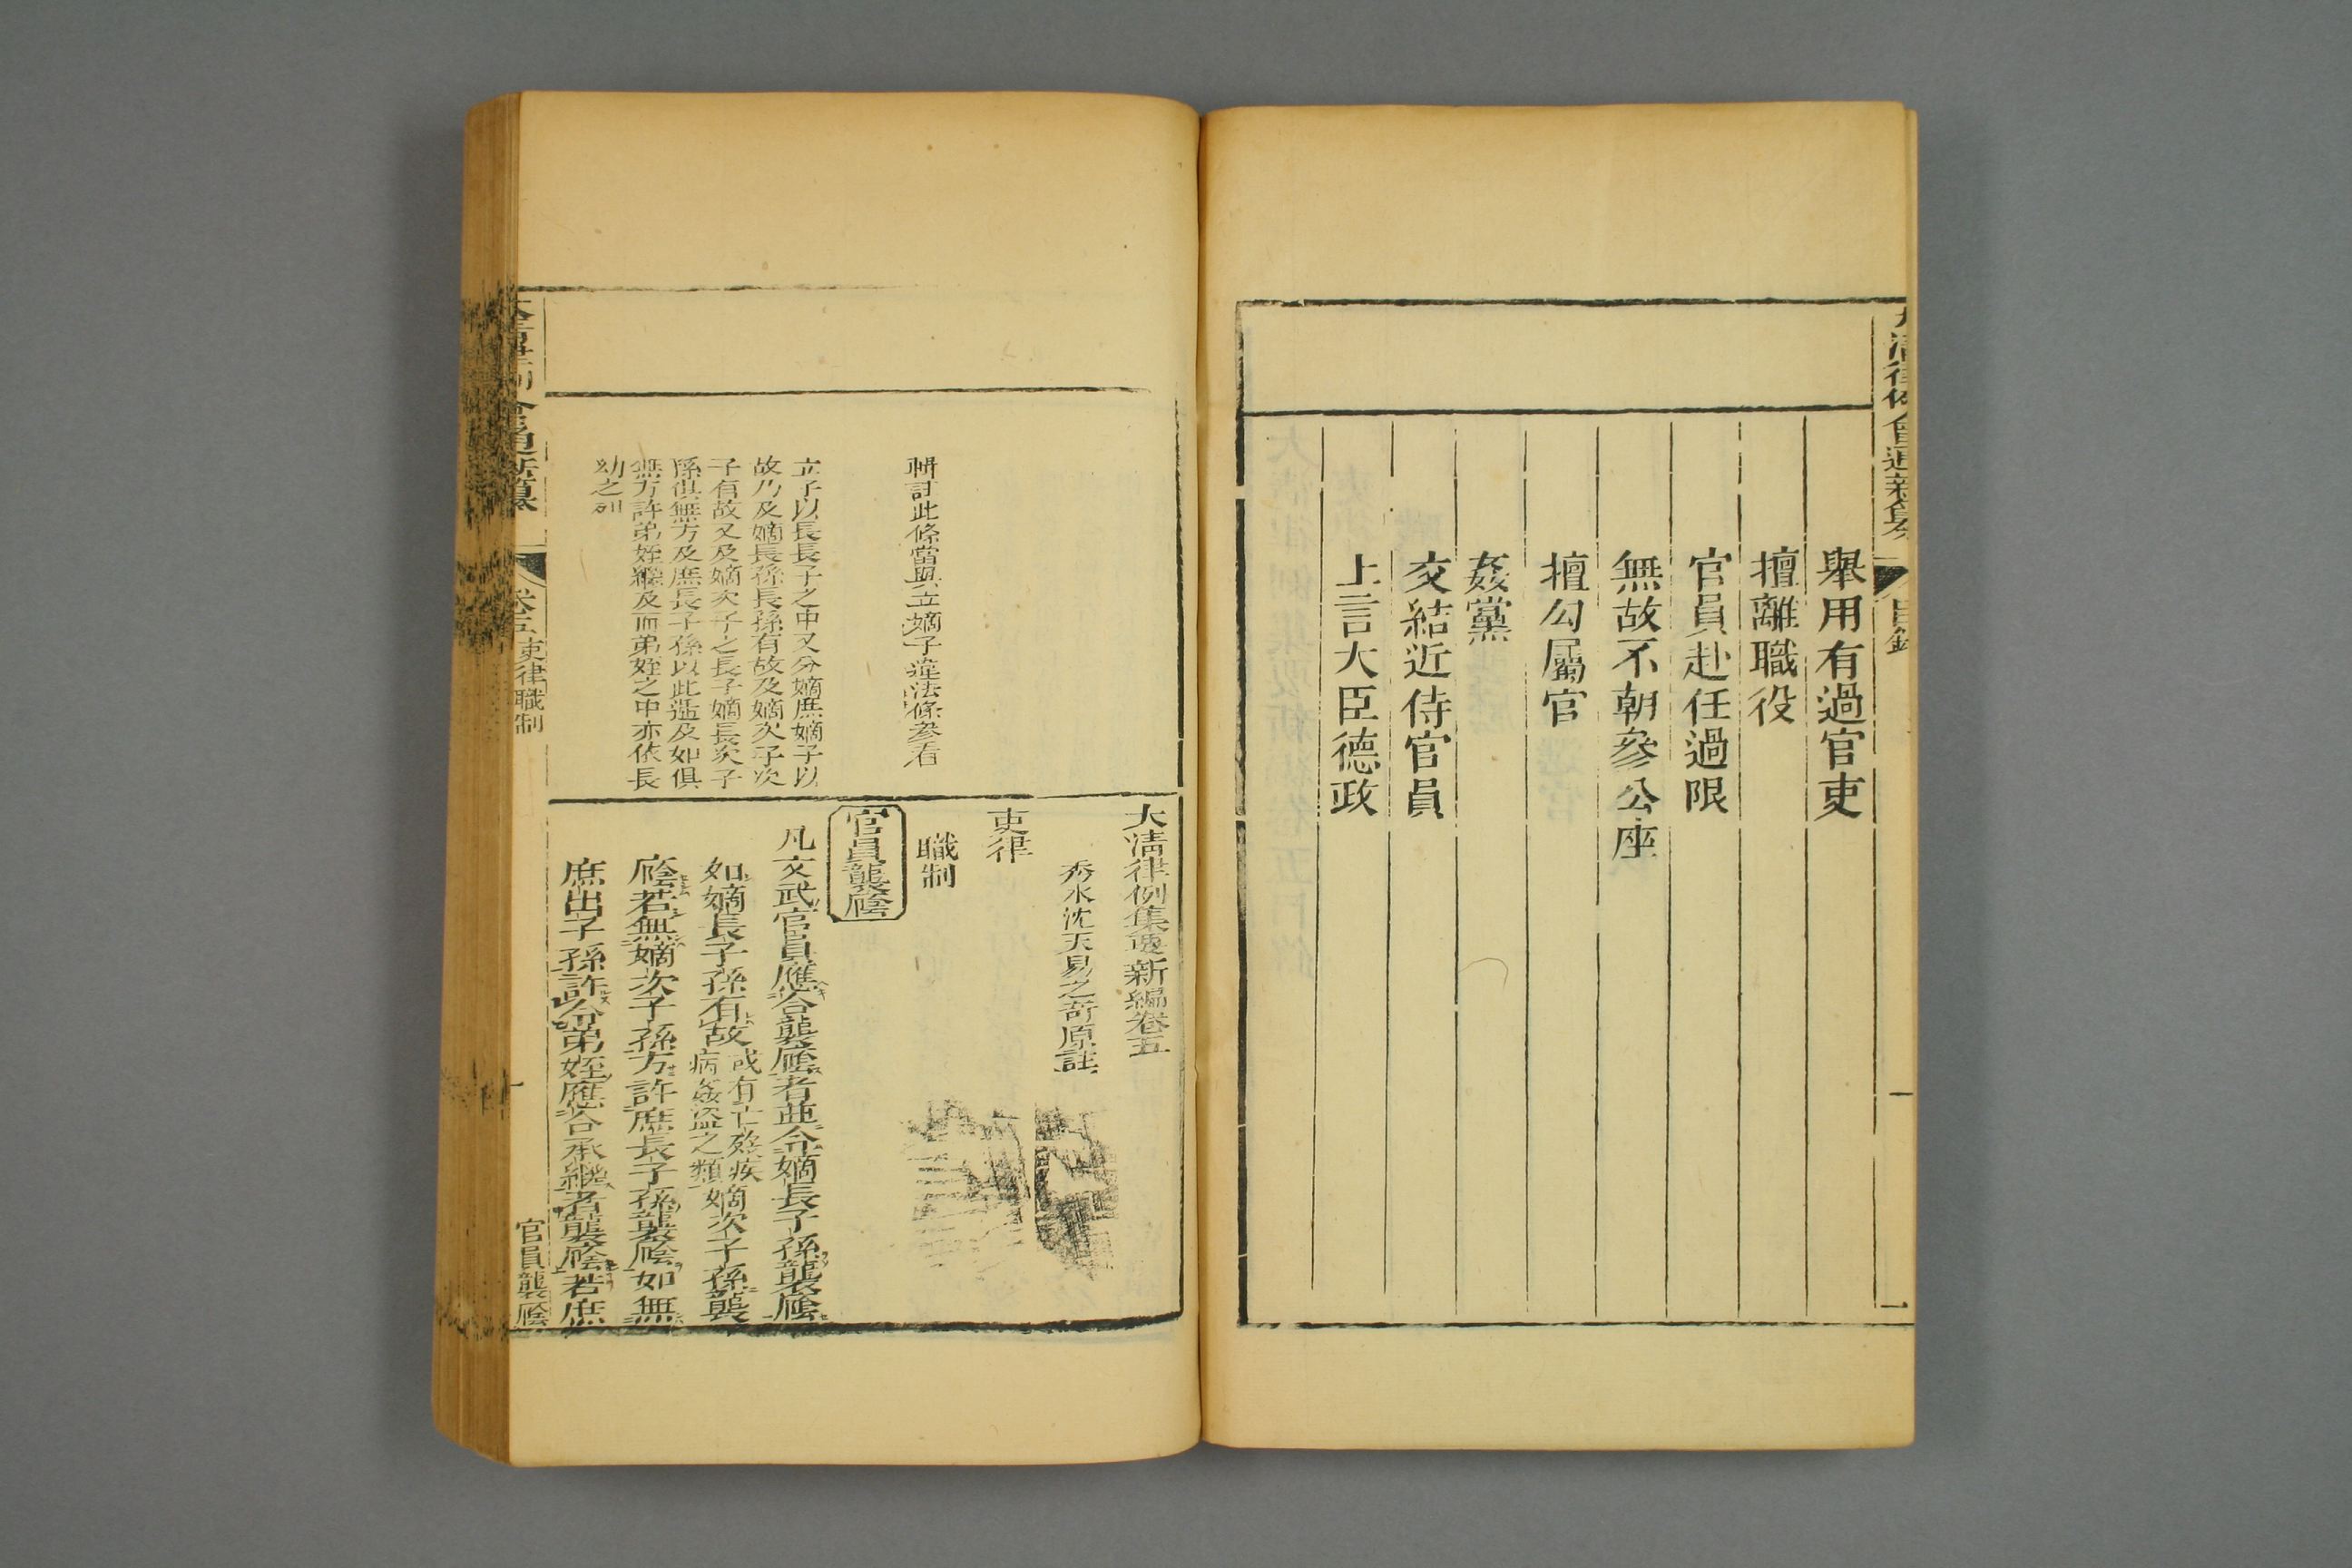 大清律例會通新纂
目錄
一
舉用有過官吏
擅離職役
官員赴任過限
無故不朝參公座
擅勾屬官
姦黨
交結近侍官員
上言大臣德政
輯訂此條當與立嫡子違法條參看
立子以長長子之中又分嫡庶嫡子以
故乃及嫡長孫長孫有故及嫡次子次
子有故又及嫡次子之長子嫡長次子
孫俱無方及庶長子孫以此遞及如俱
無方許弟姪繼及而弟姪之中亦依長
幼之列
大清律例集要新編卷五
秀水沈天易之奇原註
吏律
職制
官員襲廕
凡文武官員應合襲廕者並令嫡長子孫襲廕
如嫡長子孫有故或有亡殁疾病姦盜之類嫡次子孫襲
廕若無嫡次子孫方許庶長子孫襲廕如無
庶出子孫許令弟姪應合承繼者襲廕若庶
大清律例會通新纂
卷五吏律職制
一
官員襲廕